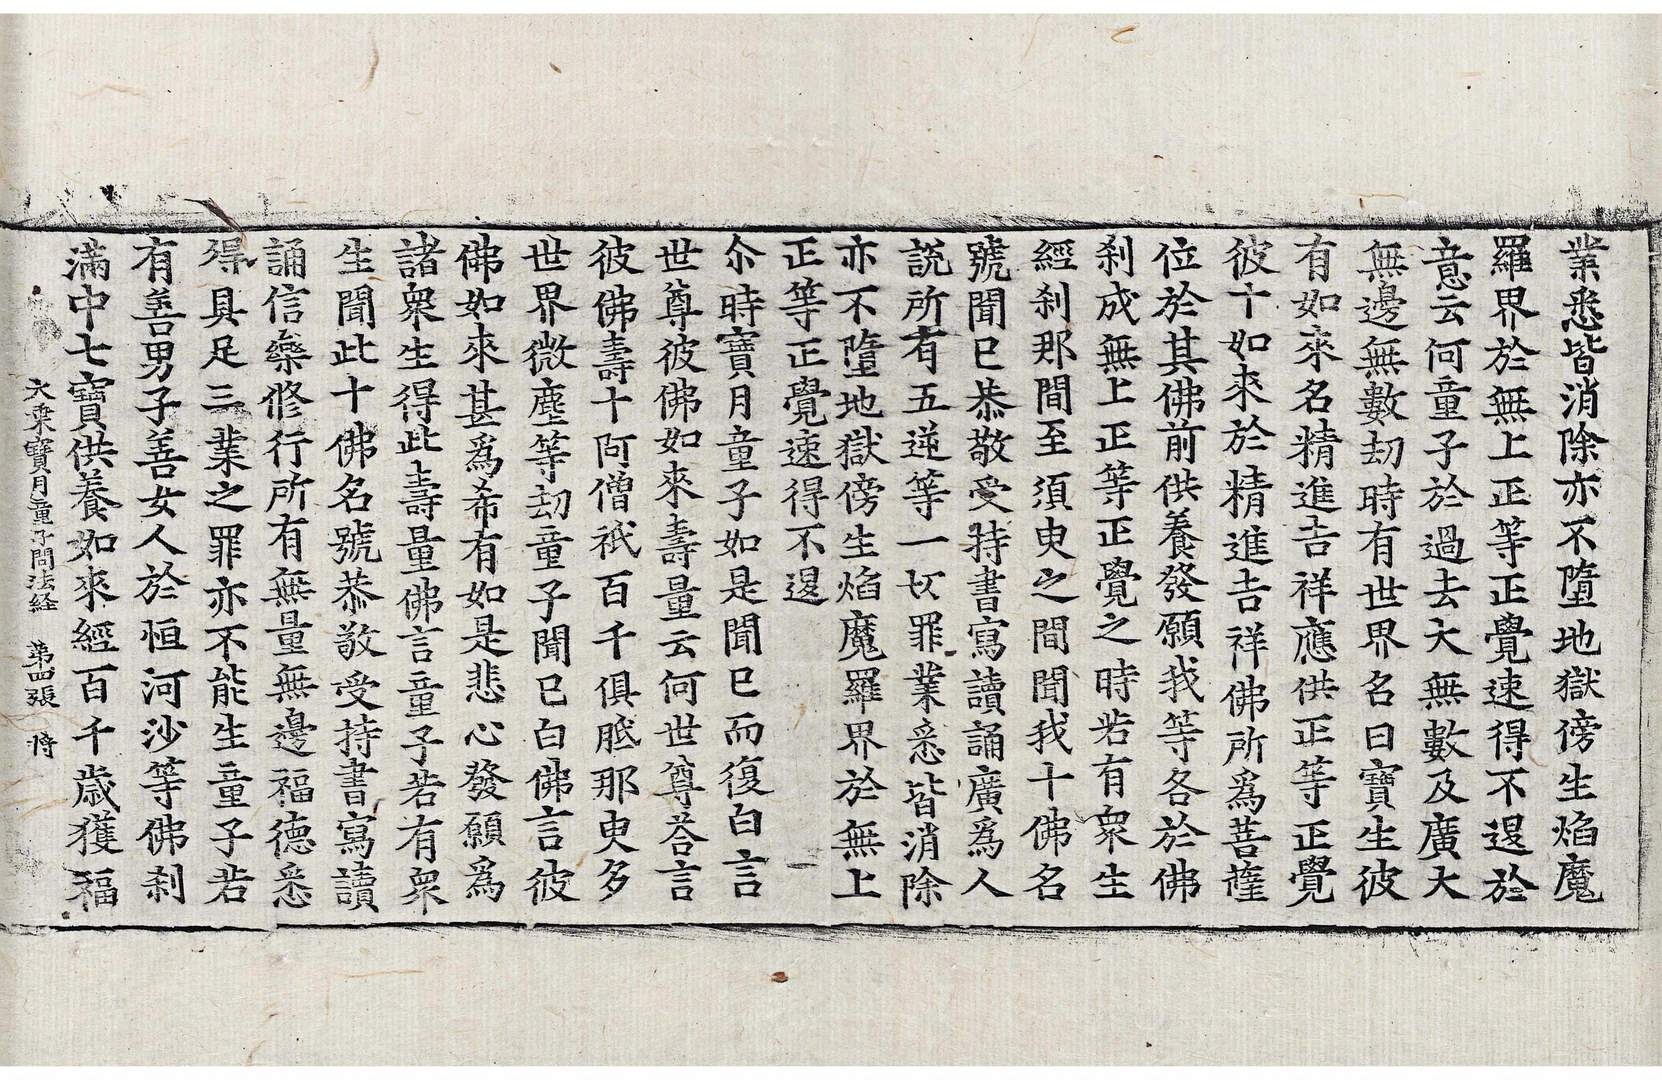 業悉皆消除亦不墮地獄傍生焰魔
羅界於無上正等正覺速得不退於
意云何童子於過去大無數及廣大
無邊無數劫時有世界名曰寶生彼
有如來名精進吉祥應供正等正覺
彼十如來於精進吉祥佛所爲菩薩
位於其佛前供養發願我等各於佛
刹成無上正等正覺之時若有衆生
經刹那間至須臾之間聞我十佛名
號聞已恭敬受持書寫讀誦廣爲人
說所有五逆等一切罪業悉皆消除
亦不墮地獄傍生焰魔羅界於無上
正等正覺速得不退
尒時寶月童子如是聞已而復白言
世尊彼佛如來壽量云何世尊荅言
彼佛壽十阿僧祇百千俱胝那臾多
世界微塵等劫童子聞已白佛言彼
佛如來甚爲希有如是悲心發願爲
諸衆生得此壽量佛言童子若有衆
生聞此十佛名號恭敬受持書寫讀
誦信樂修行所有無量無邊福德悉
得具足三業之罪亦不能生童子若
有善男子善女人於恒河沙等佛刹
滿中七寶供養如來經百千歲獲福
大乘寶月童子問法経 第四張 將